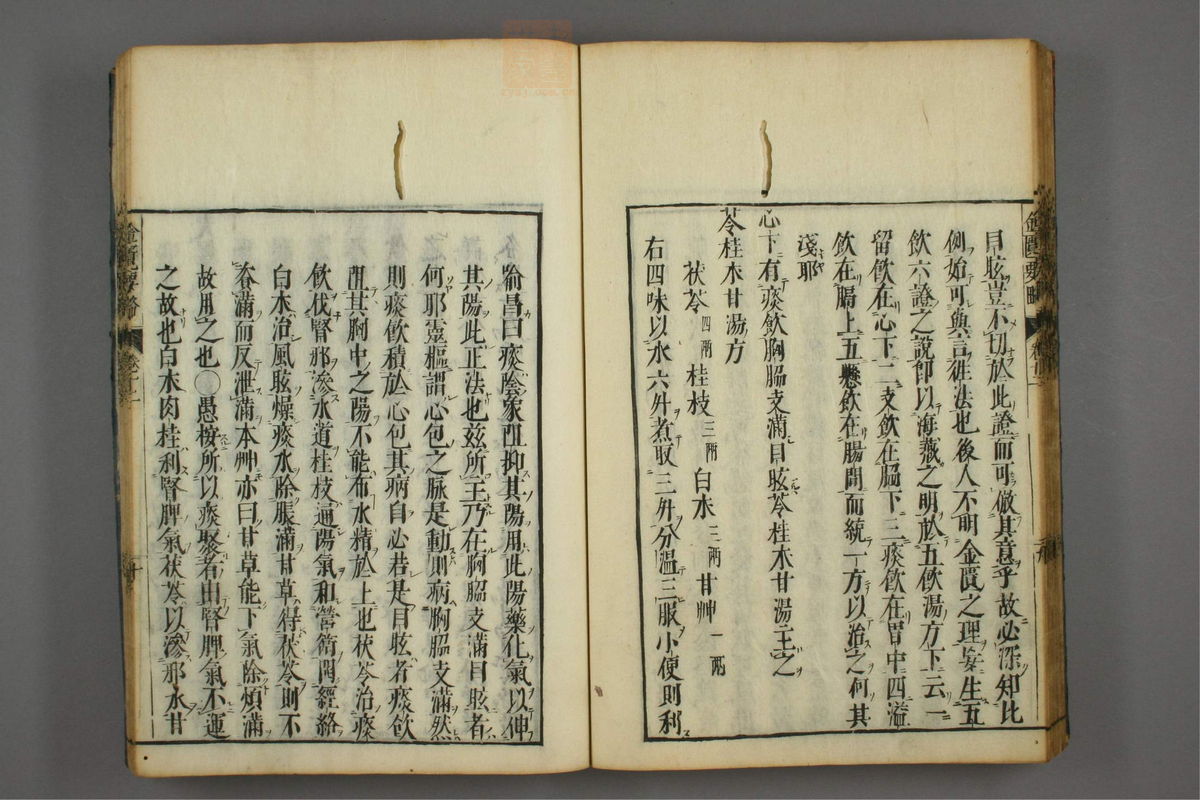 目眩豈不切於此證而可倣其意乎故必深知比
例始可與言徃法也後人不明金匱之理妄生五
飲六證之說卽以海藏之明於五飲湯方下云一
留飲在心下二支飲在脇下三痰飲在胃中四溢
飲在膈上五懸飲在腸間而統一方以治之何其
淺耶
心下有痰飲胸脇支滿目眩苓桂朮甘湯主之
苓桂朮甘湯方
茯苓四兩 桂枝三兩 白朮三兩 甘艸一兩
右四味以水六升煮取三升分溫三服小便則利
喻昌曰痰陰象阻抑其陽用此陽藥化氣以伸
其陽此正法也玆所主乃在胸脇支滿目眩者
何耶靈樞謂心包之脉是動則病胸脇支滿然
則痰飲積於心包其病自必若是目眩者痰飲
阻其胸中之陽不能布水精於上也茯苓治痰
飲伐腎邪滲水道桂枝通陽氣和營衛開經絡
白朮治風眩燥痰水除脹滿甘草得茯苓則不
資滿而反泄滿本艸亦曰甘草能下氣除煩滿
故用之也○愚按所以痰聚者由腎脾氣不運
之故也白朮肉桂利腎脾氣茯苓以滲邪水甘
金匱要略